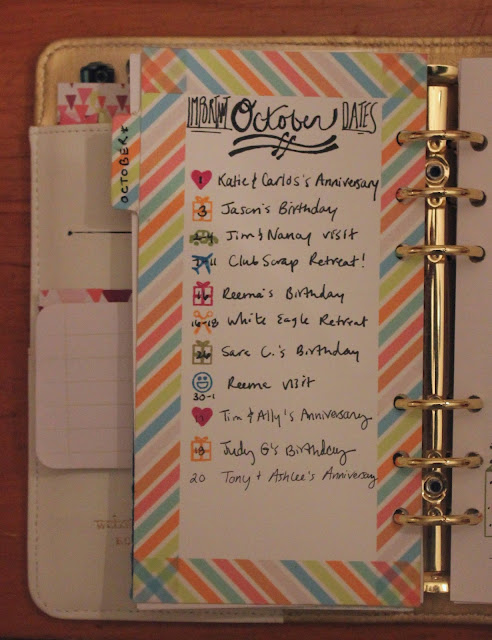 IMPORTANT October DATES
OCTOBER
1 Katie & Carlos's Anniversary
3 Jason's Birthday
Jim & Nancy visit
Club Scrap Retreat!
16 Reema's Birthday
16-18 White Eagle Retreat
26 Sara C.'s Birthday
Reema visit
30-1
Tim & Ally's Anniversary
Judy G's Birthday
20 Tony + Ashlee's Anniversary